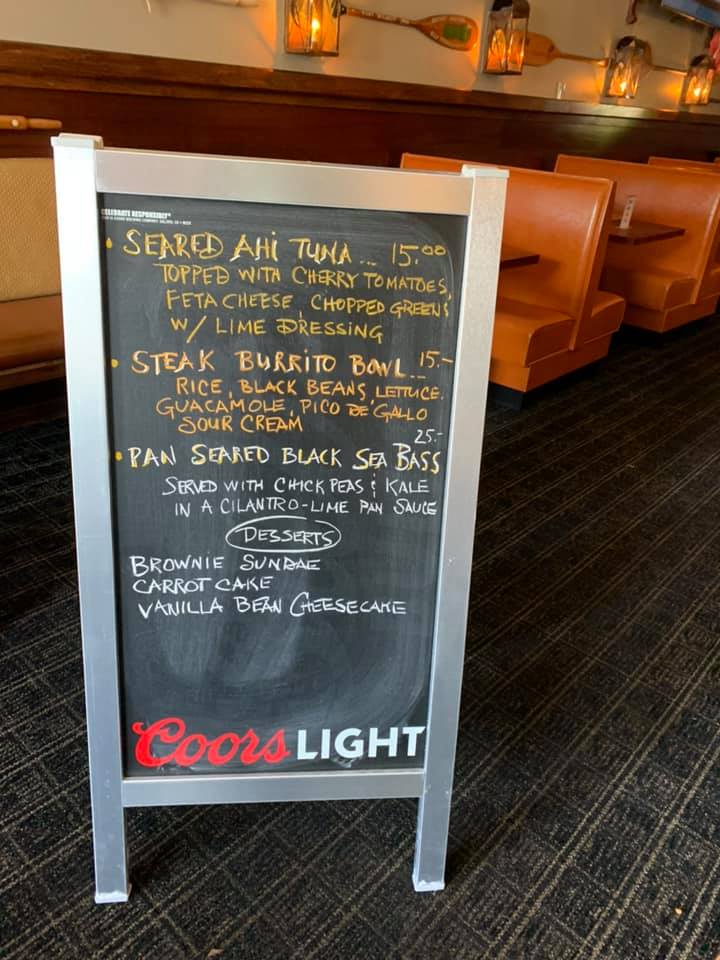 CELEBRATE RESPONSIBLY®
SEARED AHI TUNA... 15.00
TOPPED WITH CHERRY TOMATOES,
FETA CHEESE, CHOPPED GREENS
W/ LIME DRESSING
STEAK BURRITO BOWL... 15.-
RICE, BLACK BEANS, LETTUCE,
GUACAMOLE, PICO DE GALLO
SOUR CREAM
25.-
PAN SEARED BLACK SEA BASS
SERVED WITH CHICK PEAS & KALE
IN A CILANTRO-LIME PAN SAUCE
DESSERTS
BROWNIE SUNDAE
CARROT CAKE
VANILLA BEAN CHEESECAKE
Coors LIGHT